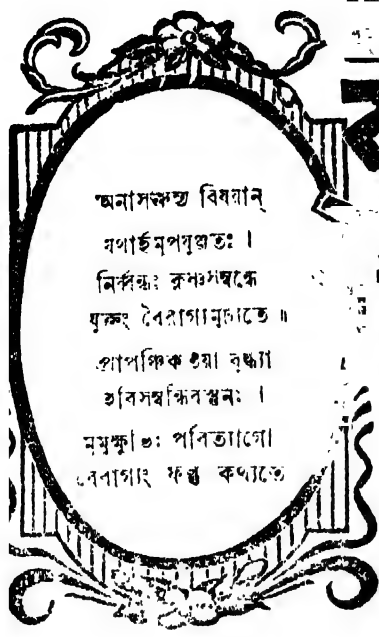 অনাসক্তস্য বিষয়ান্
যথার্হমুপযুঞ্জতঃ ।
নির্ব্বন্ধঃ কৃষ্ণসম্বন্ধে
যুক্তং বৈরাগ্যমুচ্যতে ॥
প্রাপঞ্চিকতয়া বুদ্ধ্যা
হরিসম্বন্ধিবস্তুনঃ ।
মুমুক্ষুভিঃ পরিত্যাগো
বৈরাগ্যং ফল্গু কথ্যতে